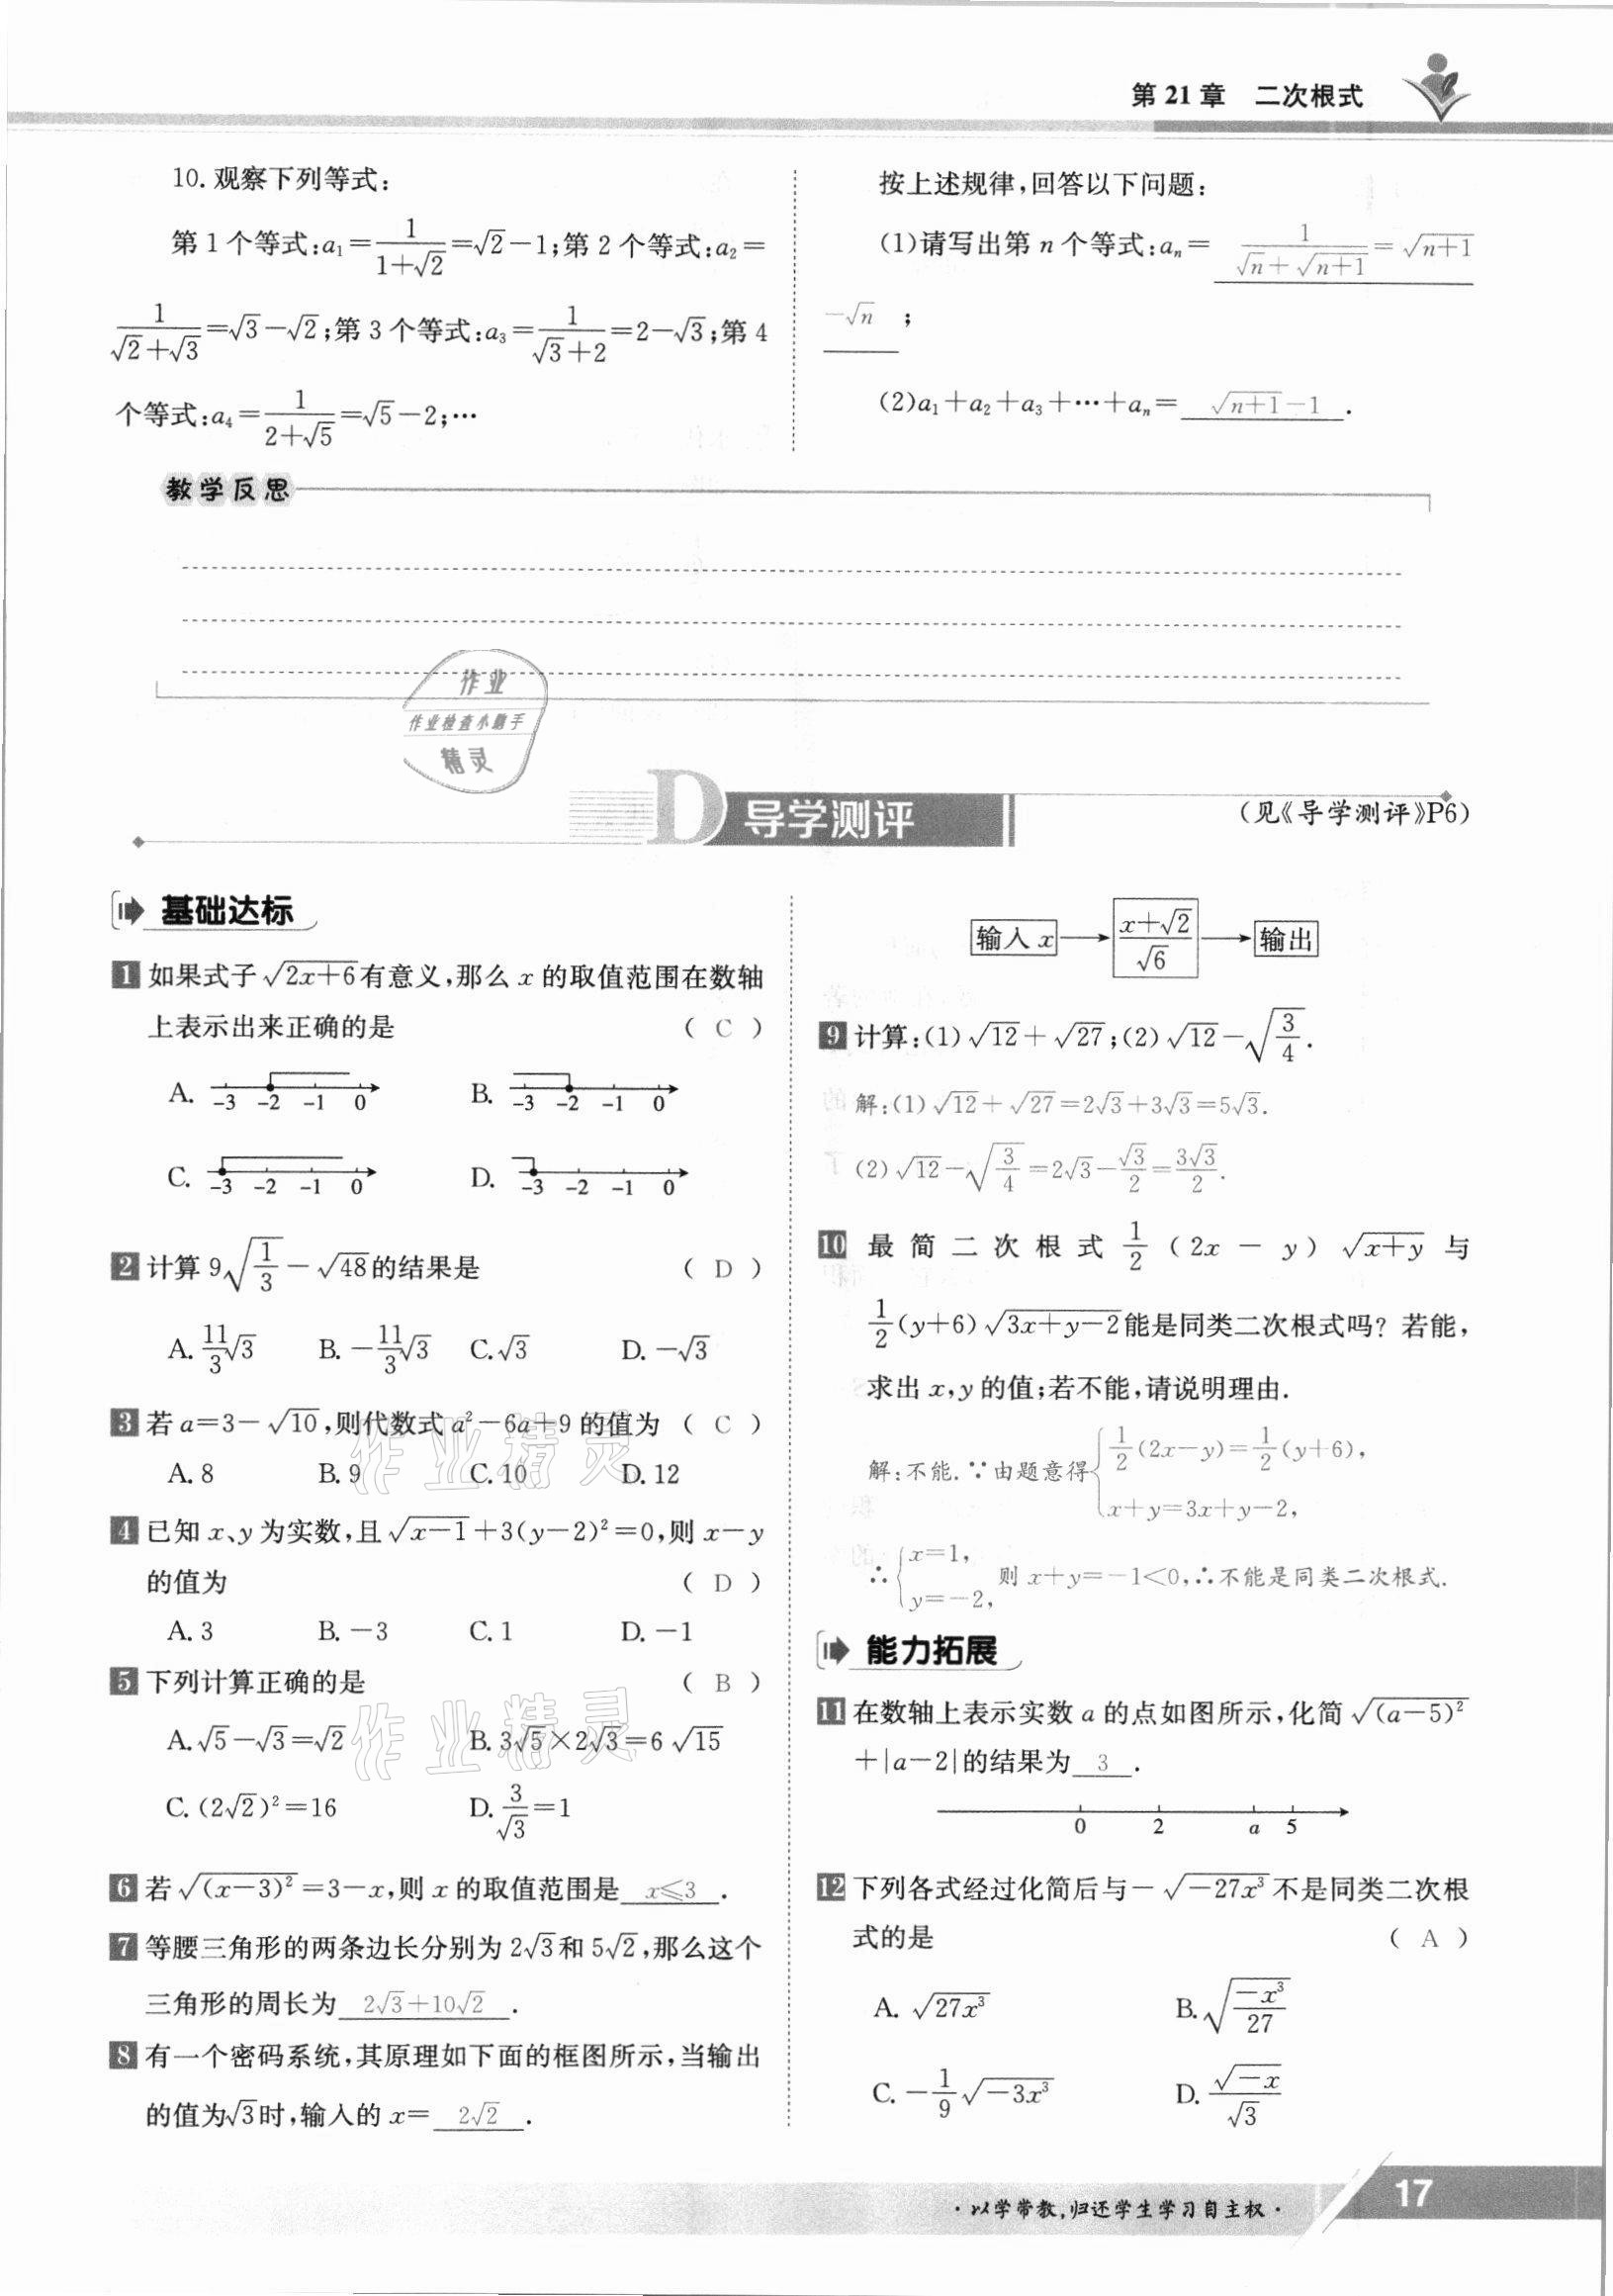 第 21 章　二次根式
10. 观察下列等式:
第 1 个等式:a₁=1/(1+√2)=√2-1;第 2 个等式:a₂=
1/(√2+√3)=√3-√2;第 3 个等式:a₃=1/(√3+2)=2-√3;第 4
个等式:a₄=1/(2+√5)=√5-2;…
按上述规律,回答以下问题:
(1)请写出第 n 个等式:aₙ= 1/(√n+√(n+1))=√(n+1)
-√n ;
(2)a₁+a₂+a₃+…+aₙ= √(n+1)-1 .
教学反思
作业
作业检查小题手
精灵
D 导学测评
(见《导学测评》P6)
基础达标
1 如果式子√(2x+6)有意义,那么 x 的取值范围在数轴
上表示出来正确的是 ( C )
A. -3 -2 -1 0 B. -3 -2 -1 0
C. -3 -2 -1 0 D. -3 -2 -1 0
2 计算 9√(1/3)-√48的结果是 ( D )
A. 11/3√3 B. -11/3√3 C. √3 D. -√3
3 若 a=3-√10,则代数式 a²-6a+9 的值为 ( C )
A. 8 B. 9 C. 10 D. 12
4 已知 x、y 为实数,且√(x-1)+3(y-2)²=0,则 x-y
的值为 ( D )
A. 3 B. -3 C. 1 D. -1
5 下列计算正确的是 ( B )
A. √5-√3=√2 B. 3√5×2√3=6√15
C. (2√2)²=16 D. 3/√3=1
6 若√((x-3)²)=3-x,则 x 的取值范围是 x≤3 .
7 等腰三角形的两条边长分别为 2√3和 5√2,那么这个
三角形的周长为 2√3+10√2 .
8 有一个密码系统,其原理如下面的框图所示,当输出
的值为√3时,输入的 x= 2√2 .
输入 x → (x+√2)/√6 → 输出
9 计算:(1)√12+√27;(2)√12-√(3/4).
解:(1)√12+√27=2√3+3√3=5√3.
(2)√12-√(3/4)=2√3-√3/2=3√3/2.
10 最简二次根式 1/2(2x-y)√(x+y) 与
1/2(y+6)√(3x+y-2)能是同类二次根式吗? 若能,
求出 x,y 的值;若不能,请说明理由.
解:不能.∵由题意得{1/2(2x-y)=1/2(y+6),
x+y=3x+y-2,
∴{x=1,
y=-2, 则 x+y=-1<0,∴不能是同类二次根式.
能力拓展
11 在数轴上表示实数 a 的点如图所示,化简√((a-5)²)
+|a-2|的结果为 3 .
0 2 a 5
12 下列各式经过化简后与-√(-27x³)不是同类二次根
式的是 ( A )
A. √(27x³) B. √(-x³/27)
C. -1/9√(-3x³) D. √(-x)/√3
作业精灵
作业精灵
·以学带教,归还学生学习自主权·
17